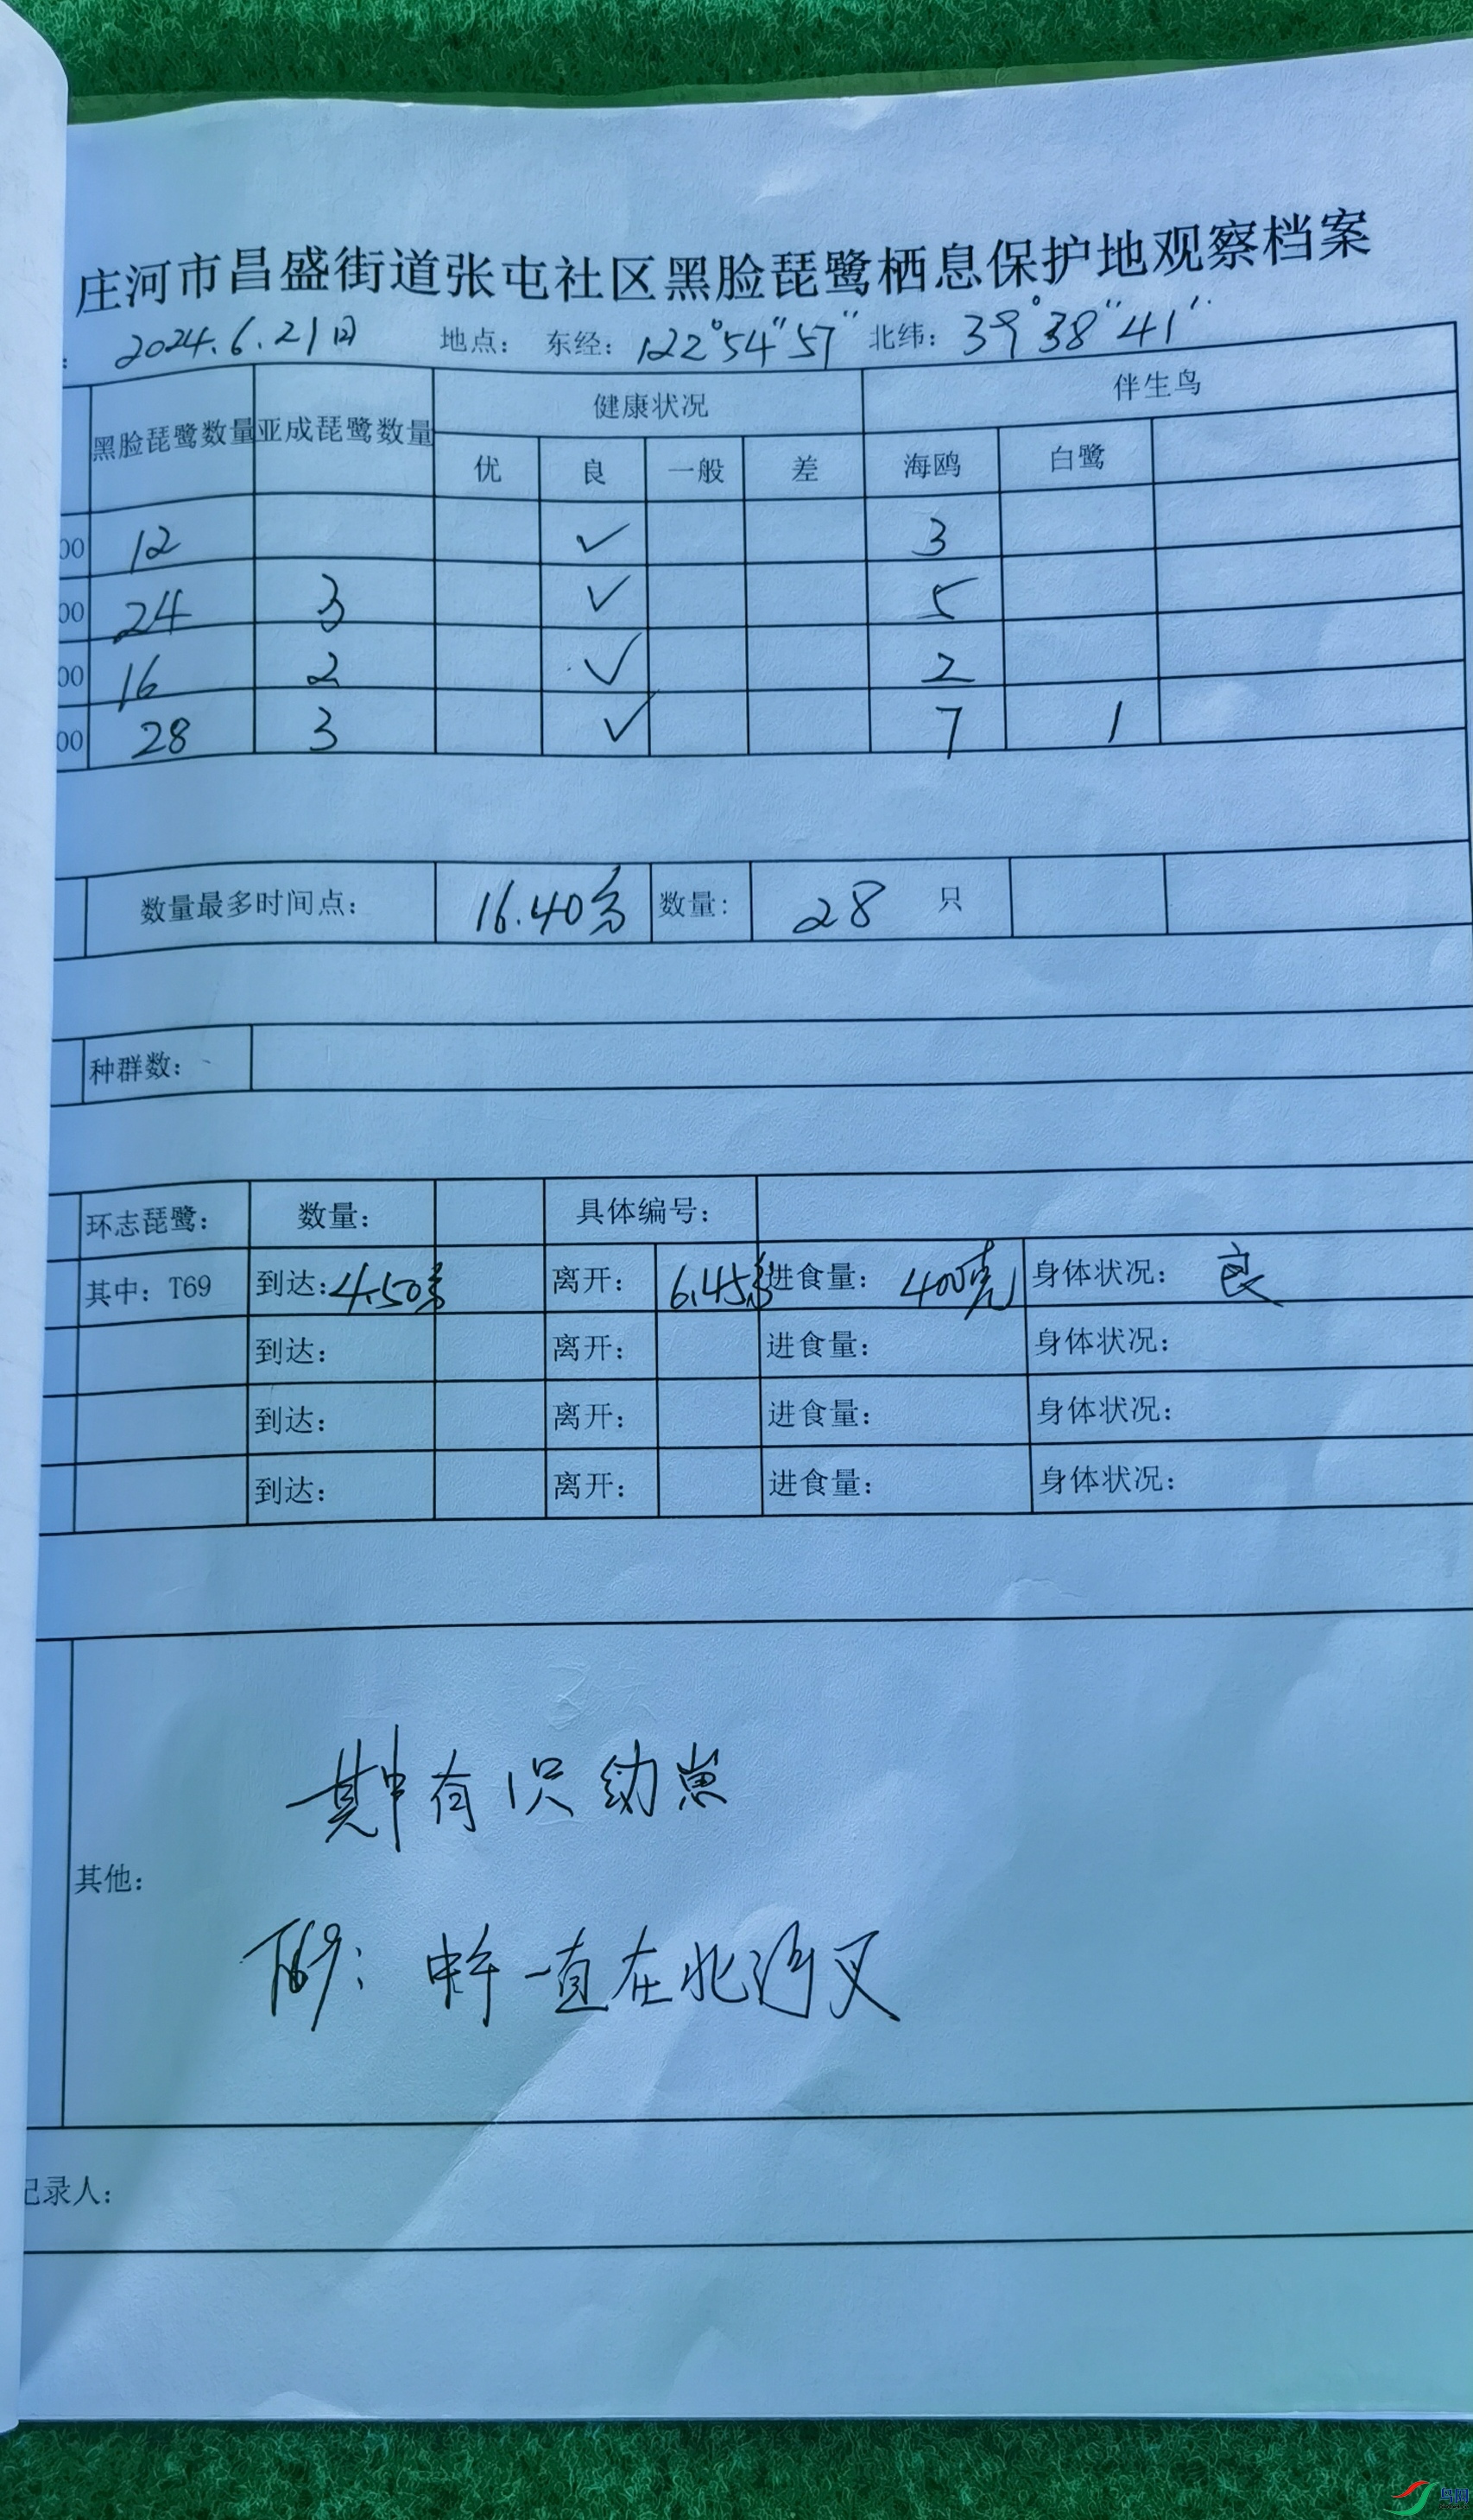 庄河市昌盛街道张屯社区黑脸琵鹭栖息保护地观察档案
: 2024.6.21日 地点: 东经: 122°54"57" 北纬: 39°38"41"
黑脸琵鹭数量 亚成琵鹭数量 健康状况 伴生鸟
优 良 一般 差 海鸥 白鹭
00 12 ✓ 3
00 24 3 ✓ 5
00 16 2 ✓ 2
00 28 3 ✓ 7 1
数量最多时间点: 16.40分 数量: 28 只
种群数:
环志琵鹭: 数量: 具体编号:
其中: T69 到达: 4.50分 离开: 6.45分 进食量: 400克 身体状况: 良
到达: 离开: 进食量: 身体状况:
到达: 离开: 进食量: 身体状况:
到达: 离开: 进食量: 身体状况:
其中有1只幼崽
其他:
T69: 中午一直在北河叉
记录人:
鸟网